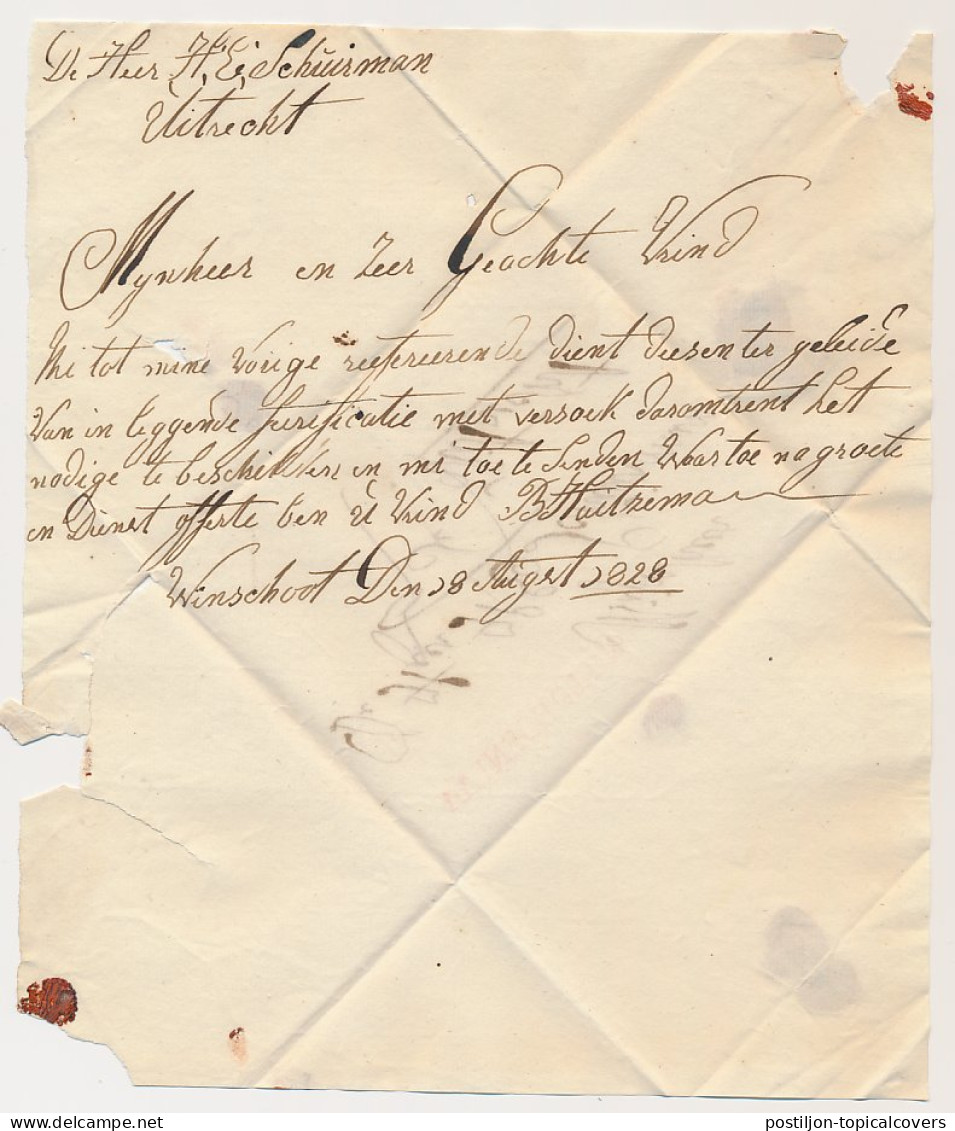 De Heer H, E, Schuirman
Uitrecht
Mynheer en Zeer Geachte Vrind
Mi tot mine Vorige refereerende dient deesen ter geleide
Van in leggende Surificatie met versoek daromtrent het
nodige te beschikken en mi toe te Senden Waar toe na groete
en Dienst offerte ben U Vrind B Huitzema
Winschoot Den 18 August 1828
postiljon-topicalcovers